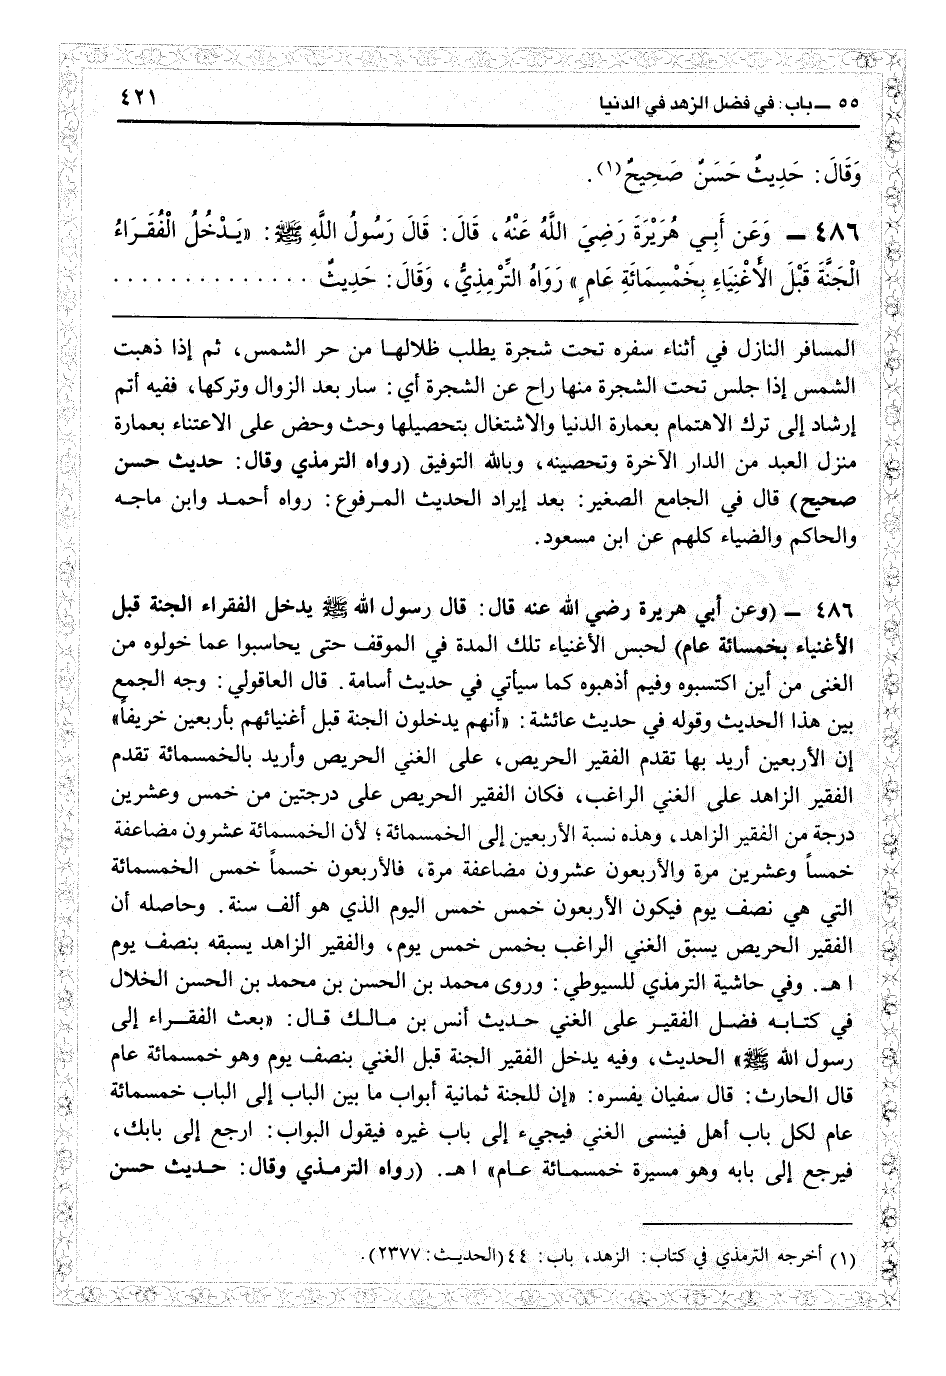 ٥٥ ــ باب: في فضل الزهد في الدنيا
٤٢١
وَقَالَ: حَدِيثٌ حَسَنٌ صَحِيحٌ(١).
٤٨٦ ــ وَعَن أَبِـي هُرَيْرَةَ رَضِيَ اللَّهُ عَنْهُ، قَالَ: قَالَ رَسُولُ اللَّهِ ﷺ: «يَـدْخُلُ الْفُقَـرَاءُ
الْجَنَّةَ قَبْلَ الأَغْنِيَاءِ بِخَمْسِمَائَةِ عَامٍ» رَوَاهُ التِّرْمِذِيُّ، وَقَالَ: حَدِيثٌ . . . . . . . . . . . . . .
المسافر النازل في أثناء سفره تحت شجرة يطلب ظلالهـا من حر الشمس، ثم إذا ذهبت
الشمس إذا جلس تحت الشجرة منها راح عن الشجرة أي: سار بعد الزوال وتركها، ففيه أتم
إرشاد إلى ترك الاهتمام بعمارة الدنيا والاشتغال بتحصيلها وحث وحض على الاعتناء بعمارة
منزل العبد من الدار الآخرة وتحصينه، وبالله التوفيق (رواه الترمذي وقال: حديث حسن
صحيح) قال في الجامع الصغير: بعد إيراد الحديث المـرفوع: رواه أحمـد وابن ماجـه
والحاكم والضياء كلهم عن ابن مسعود.
٤٨٦ ــ (وعن أبي هريرة رضي الله عنه قال: قال رسول الله ﷺ يدخل الفقراء الجنة قبل
الأغنياء بخمسائة عام) لحبس الأغنياء تلك المدة في الموقف حتى يحاسبوا عما خولوه من
الغنى من أين اكتسبوه وفيم أذهبوه كما سيأتي في حديث أسامة. قال العاقولي: وجه الجمع
بين هذا الحديث وقوله في حديث عائشة: «أنهم يدخلون الجنة قبل أغنيائهم بأربعين خريفاً»
إن الأربعين أريد بها تقدم الفقير الحريص، على الغني الحريص وأريد بالخمسمائة تقدم
الفقير الزاهد على الغني الراغب، فكان الفقير الحريص على درجتين من خمس وعشرين
درجة من الفقير الزاهد، وهذه نسبة الأربعين إلى الخمسمائة؛ لأن الخمسمائة عشرون مضاعفة
خمساً وعشرين مرة والأربعون عشرون مضاعفة مرة، فالأربعون خسماً خمس الخمسمائة
التي هي نصف يوم فيكون الأربعون خمس خمس اليوم الذي هو ألف سنة. وحاصله أن
الفقير الحريص يسبق الغني الراغب بخمس خمس يوم، والفقير الزاهد يسبقه بنصف يوم
ا هـ. وفي حاشية الترمذي للسيوطي: وروى محمد بن الحسن بن محمد بن الحسن الخلال
في كتـابـه فضل الفقيـر على الغني حـديث أنس بن مـالـك قـال: «بعث الفقـراء إلى
رسول الله ﷺ» الحديث، وفيه يدخل الفقير الجنة قبل الغني بنصف يوم وهو خمسمائة عام
قال الحارث: قال سفيان يفسره: «إن للجنة ثمانية أبواب ما بين الباب إلى الباب خمسمائة
عام لكل باب أهل فينسى الغني فيجيء إلى باب غيره فيقول البواب: ارجع إلى بابك،
فيرجع إلى بابه وهو مسيرة خمسمـائة عـام» ا هـ. (رواه الترمـذي وقال: حـديث حسن
(١) أخرجه الترمذي في كتاب: الزهد، باب: ٤٤ (الحديث: ٢٣٧٧).